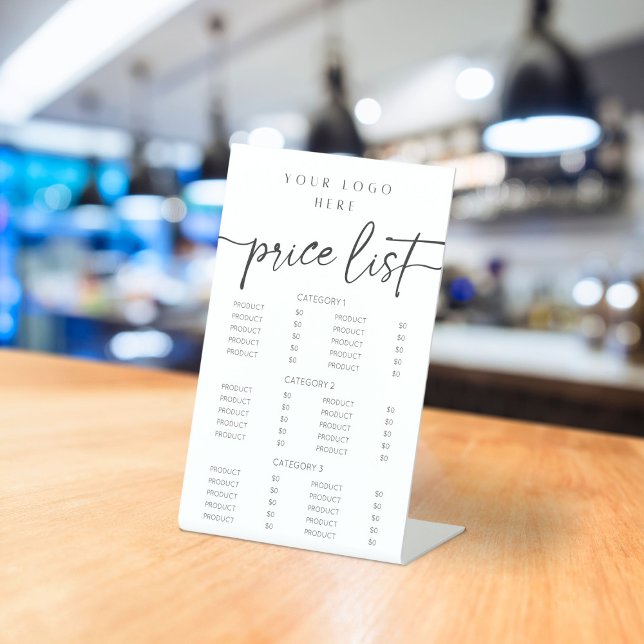 YOUR LOGO
HERE
price list
CATEGORY 1
PRODUCT $0 PRODUCT $0
PRODUCT $0 PRODUCT $0
PRODUCT $0 PRODUCT $0
PRODUCT $0 PRODUCT $0
PRODUCT $0 PRODUCT $0
CATEGORY 2
PRODUCT $0 PRODUCT $0
PRODUCT $0 PRODUCT $0
PRODUCT $0 PRODUCT $0
PRODUCT $0 PRODUCT $0
PRODUCT $0 PRODUCT $0
CATEGORY 3
PRODUCT $0 PRODUCT $0
PRODUCT $0 PRODUCT $0
PRODUCT $0 PRODUCT $0
PRODUCT $0 PRODUCT $0
PRODUCT $0 PRODUCT $0